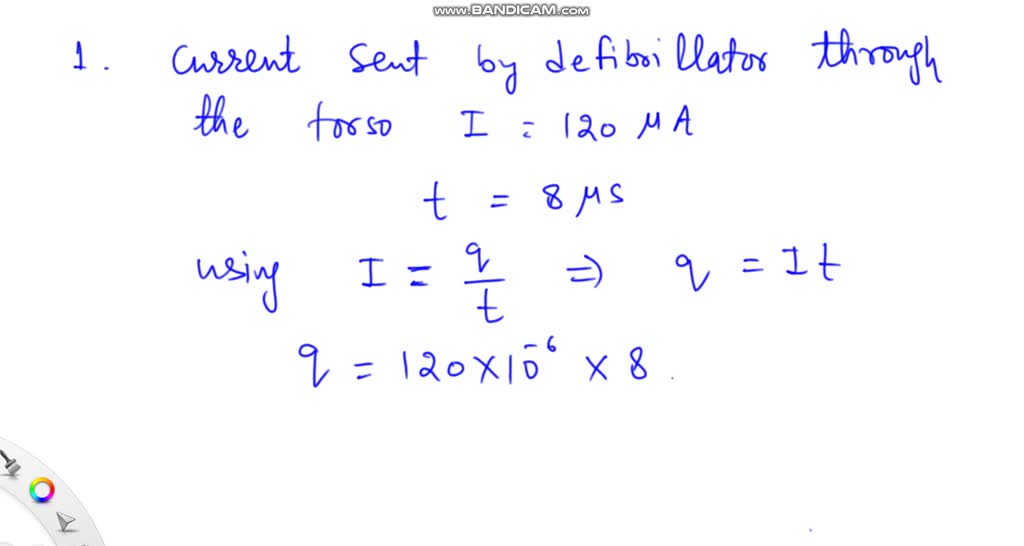 www.BANDICAM.com
1. Current sent by defibrillator through
the torso I = 120 μA
t = 8 μs
using I = q/t ⇒ q = It
q = 120×10⁻⁶ × 8